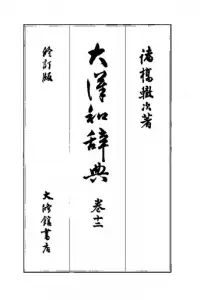 諸橋轍次著
大漢和辞典
巻十二
修訂版
大修館書店